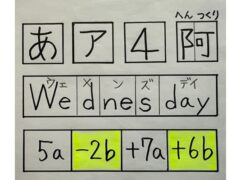 へん つくり
あ ア 4 阿
ウェ メ ン ズ デイ
We dnes day
5a -2b +7a +6b